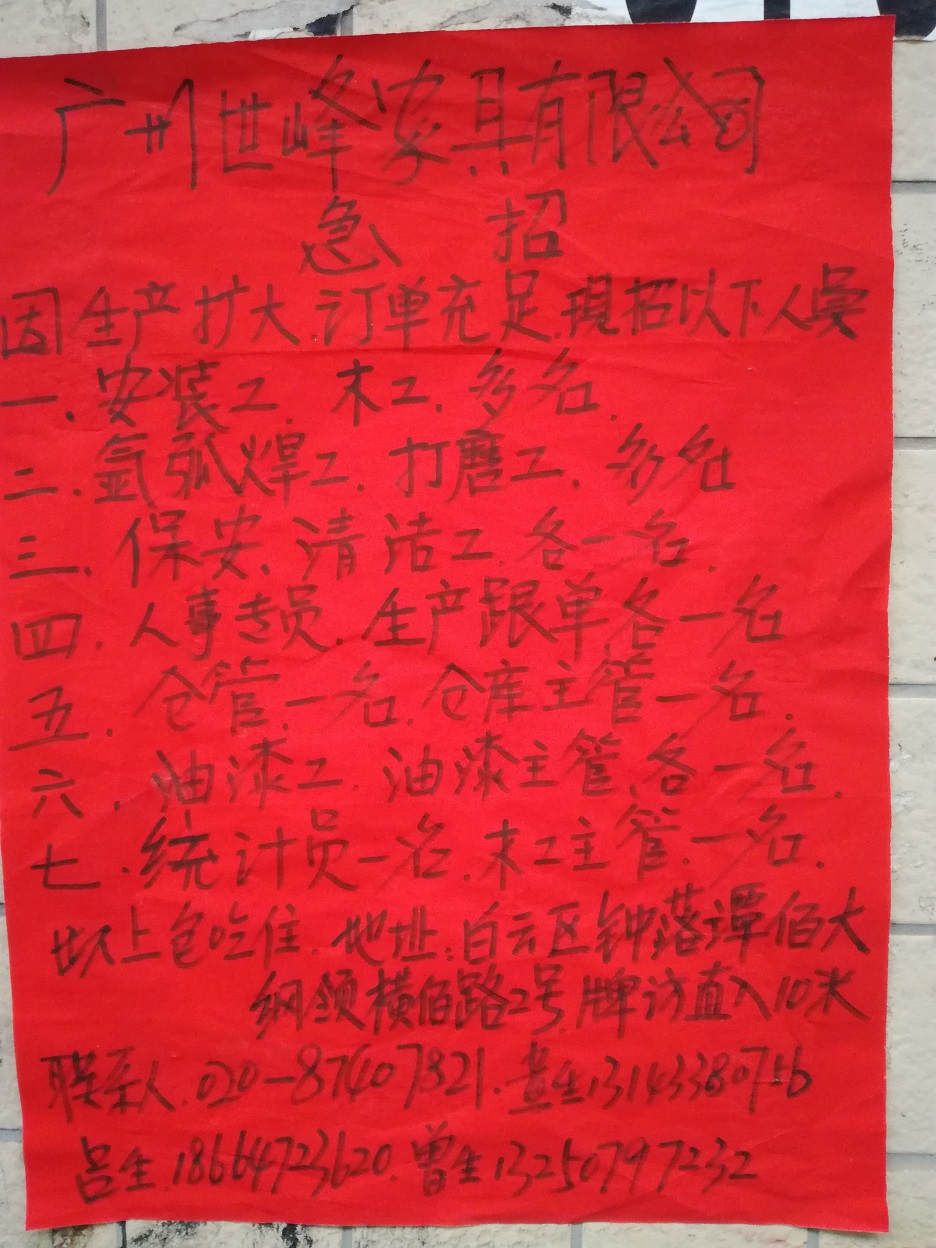 广州世峰家具有限公司
急招
因生产扩大.订单充足.現招以下人员
一.安装工.木工.多名.
二.氩弧焊工.打磨工.多名
三.保安.清洁工.各一名.
四.人事专员.生产跟单各一名
五.仓管.一名.仓库主管一名.
六.油漆工.油漆主管.各一名.
七.统计员一名.木工主管.一名.
以上包吃住.地址:白云区钟落谭佰大
纲领横佰路2号.牌访直入10米
联系人.020-87407821.黄生13143380756
吕生.18664723620.曾生13250797232